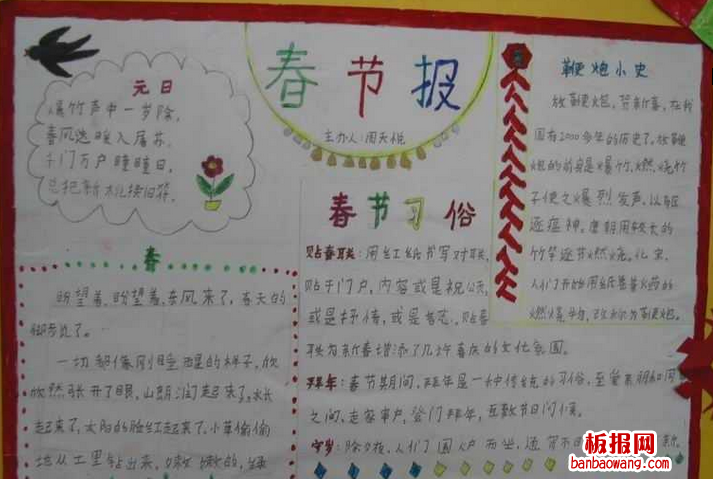 春节报
主办人:周天悦
元日
爆竹声中一岁除,
春风送暖入屠苏。
千门万户曈曈日,
总把新桃换旧符。
春
盼望着,盼望着,东风来了,春天的
脚步近了。
一切都像刚睡醒的样子,欣
欣然张开了眼,山朗润起来了,水长
起来了,太阳的脸红起来了。小草偷偷
地从土里钻出来,嫩嫩的,绿
春节习俗
贴春联:用红纸书写对联,
贴于门户,内容或是祝公元,
或是抒情,或是言志。贴春
联为新春增添了几许喜庆的文化氛围。
拜年:春节期间,拜年是一种传统的习俗,至爱亲朋和同
之间,走家串户,登门拜年,互致节日问候。
守岁:除夕夜,人们围炉而坐,
鞭炮小史
放鞭炮,贺新春,在我
国有2000多年的历史了。放鞭
炮的前身是爆竹,燃烧竹
子使之爆烈发声,以驱
逐瘟神。唐朝用较长的
竹竿逐节燃烧。北宋,
人们开始用纸卷着火药的
燃爆物,改称为鞭炮。
板报网
banbaowang.com